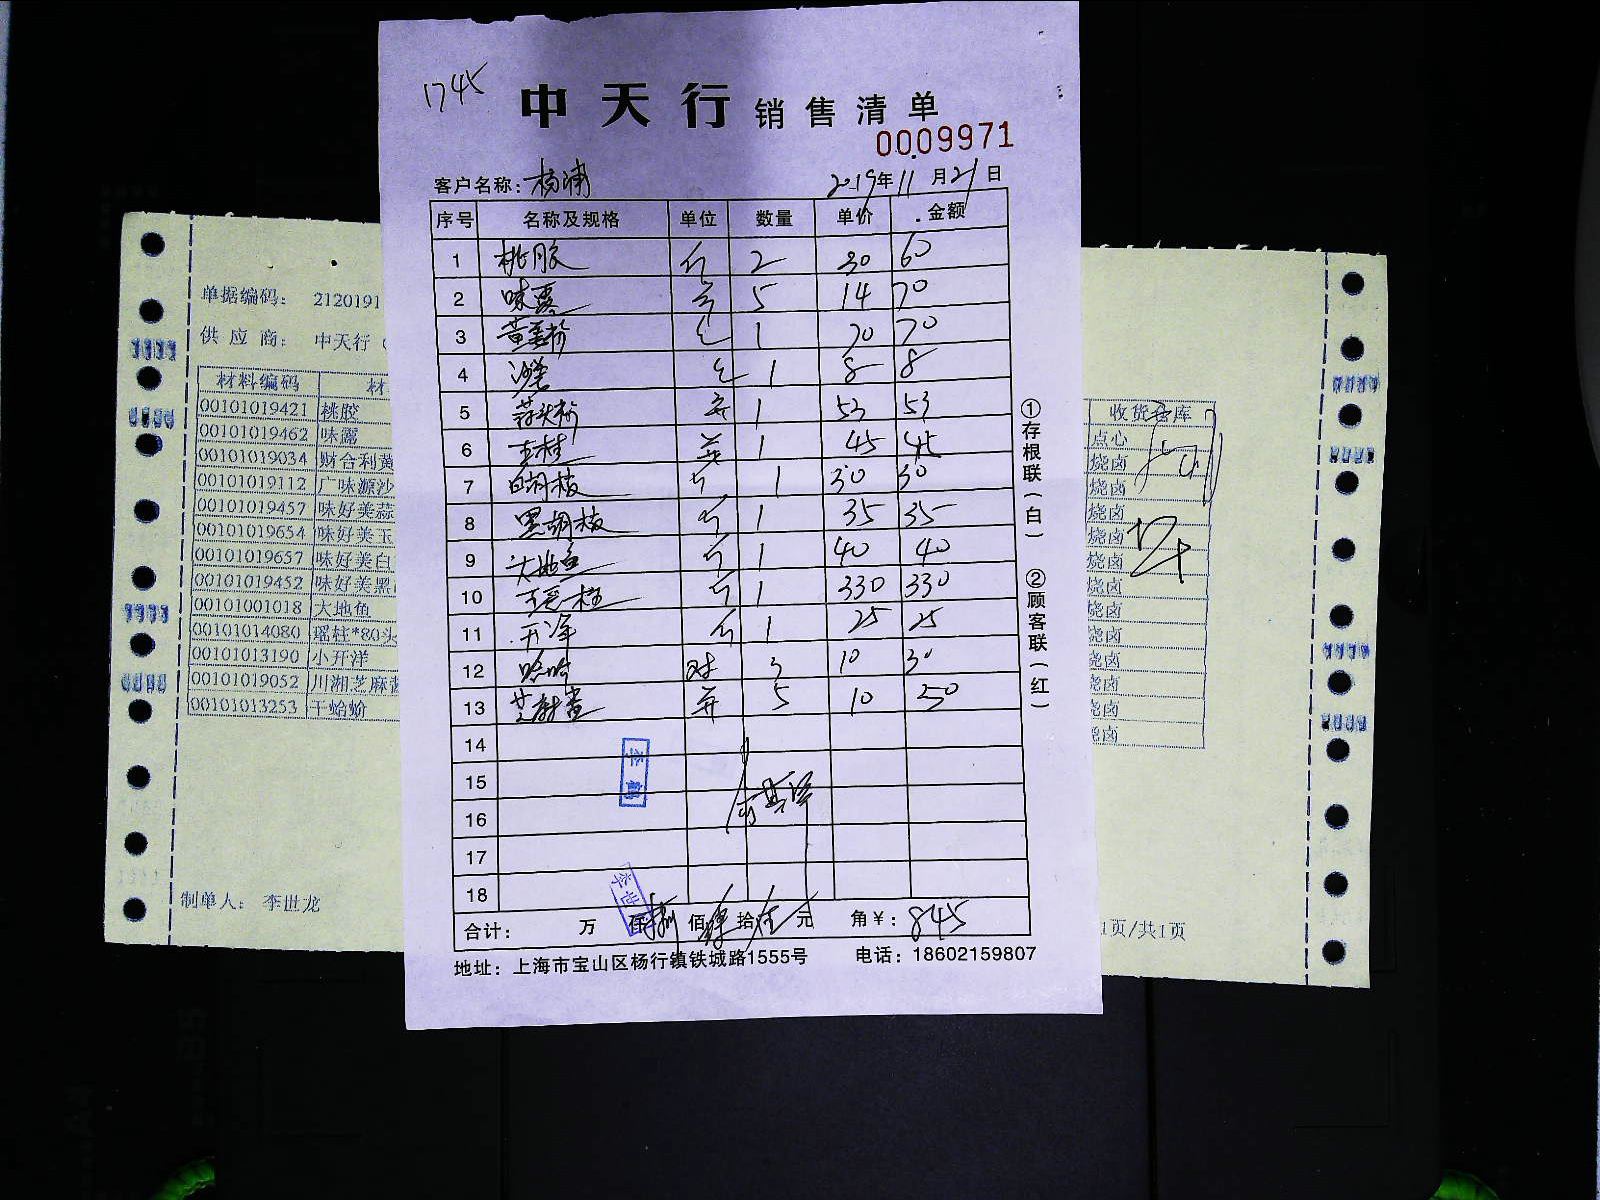 1745
中天行 销售清单
0009971
客户名称: 杨浦 2019年11月21日
序号 名称及规格 单位 数量 单价 金额
1 桃胶 斤 2 30 60
2 味露 5 14 70
3 黄姜粉 包 1 70 70
4 沙姜 包 1 8 8
5 蒜头粉 瓶 1 53 53
6 玉桂 瓶 1 45 45
7 白胡椒 斤 1 30 30
8 黑胡椒 斤 1 35 35
9 大地鱼 斤 1 40 40
10 斤 1 330 330
11 开洋 斤 1 25 25
12 哈蚧 对 3 10 30
13 芝麻酱 瓶 5 10 50
14
15
16
17
18
合计: 万 仟 捌 佰 肆 拾 伍 元 角 ¥: 845
地址: 上海市宝山区杨行镇铁城路1555号 电话: 18602159807
①存根联(白) ②顾客联(红)
李世龙
单据编码: 2120191
供应商: 中天行(
材料编码 材
00101019421 桃胶
00101019462 味露
00101019034 财合利黄
00101019112 广味源沙
00101019457 味好美蒜
00101019654 味好美玉
00101019657 味好美白
00101019452 味好美黑
00101001018 大地鱼
00101014080 瑶柱*80头
00101013190 小开洋
00101019052 川湘芝麻酱
00101013253 干蛤蚧
制单人: 李世龙
收货仓库
点心
烧卤
烧卤
烧卤
烧卤
烧卤
烧卤
烧卤
烧卤
烧卤
烧卤
烧卤
烧卤
1页/共1页